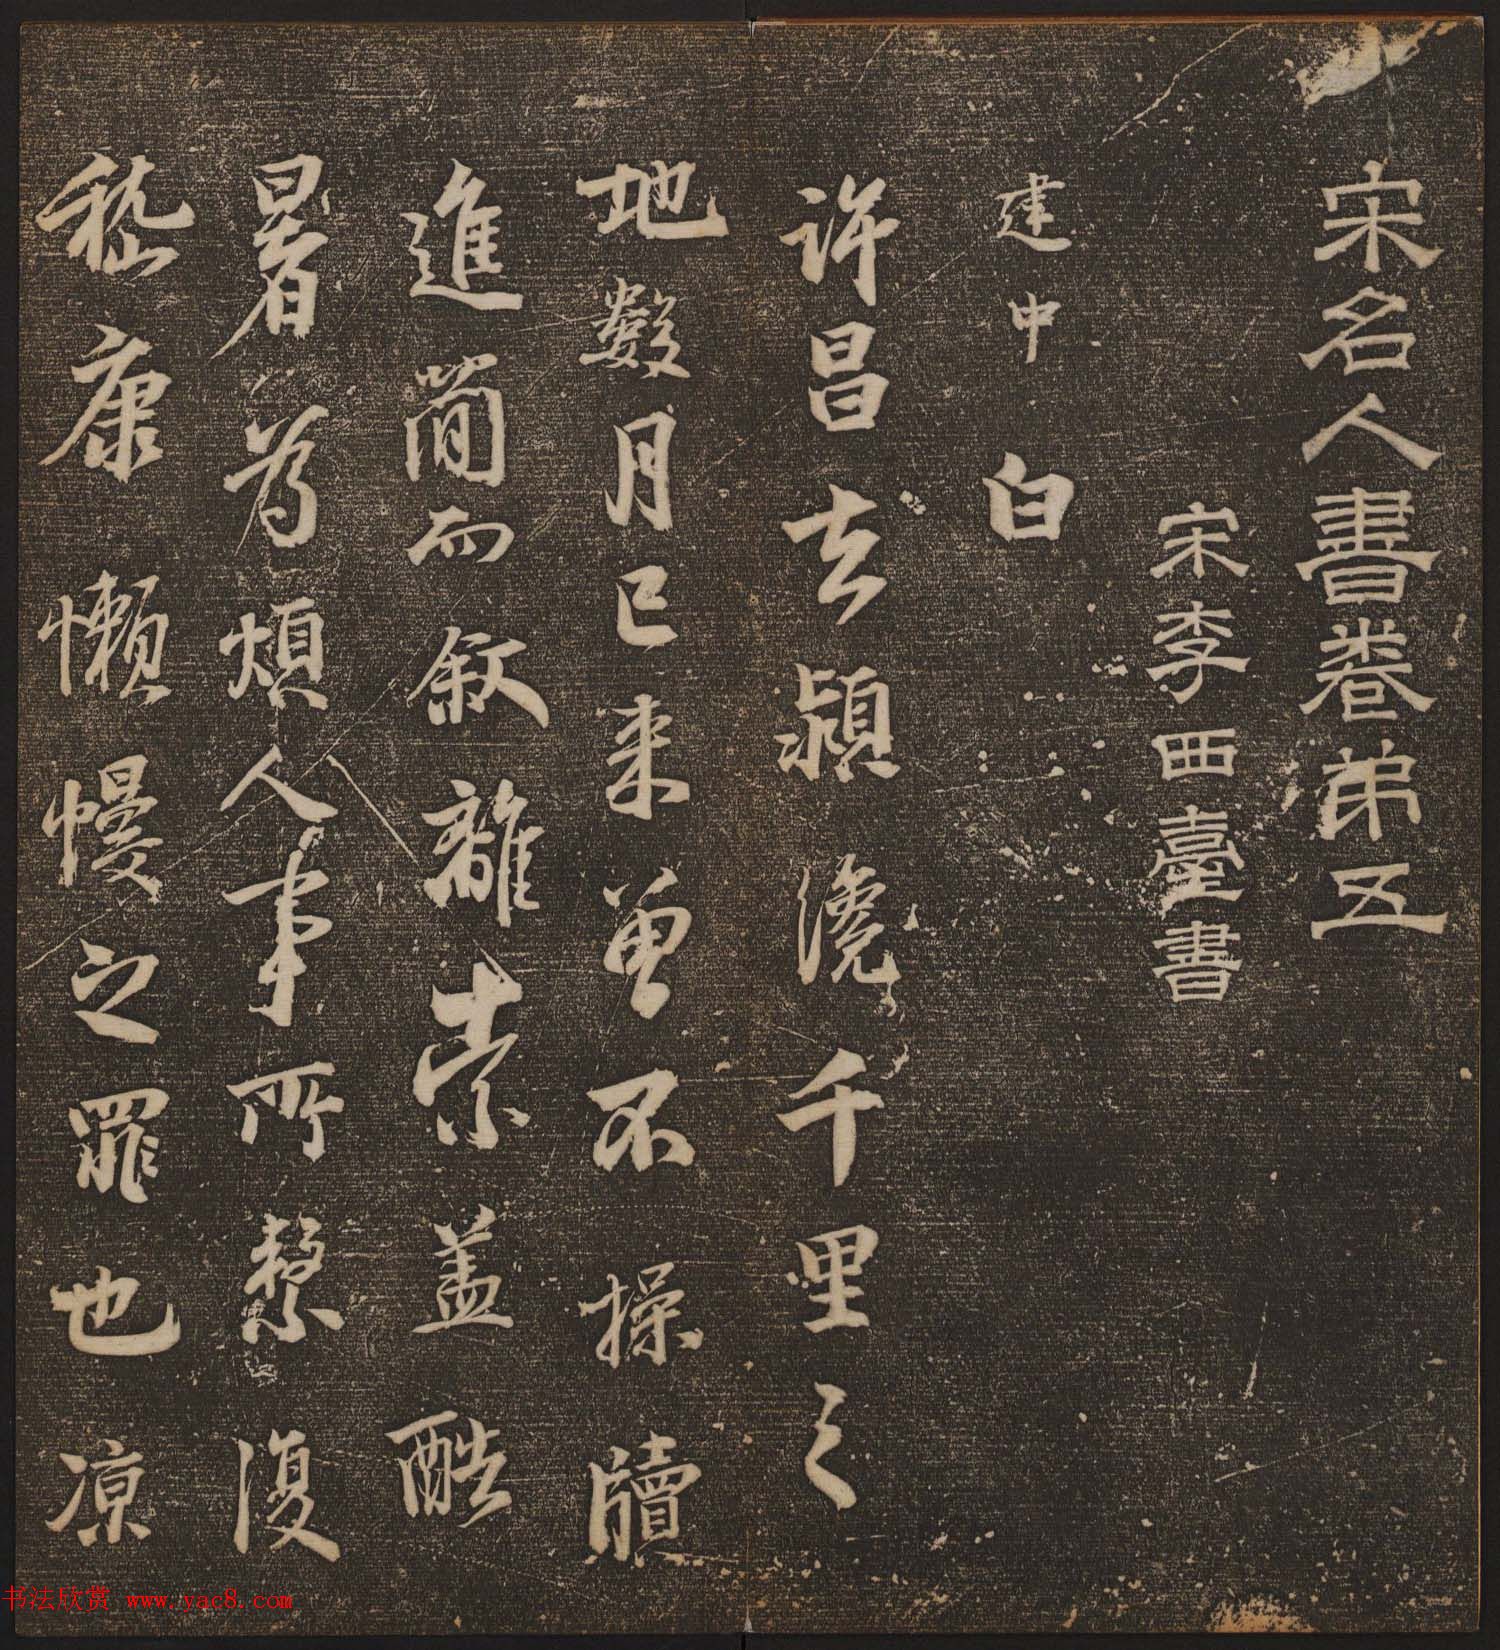 宋名人書卷第五
宋李西臺書
建中白
許昌去潁浼千里之
地數月已来曾不操牘
進簡而敘離索盖酷
暑爲煩人事所繁復
嵇康懶慢之罪也涼
书法欣赏 www.yac8.com